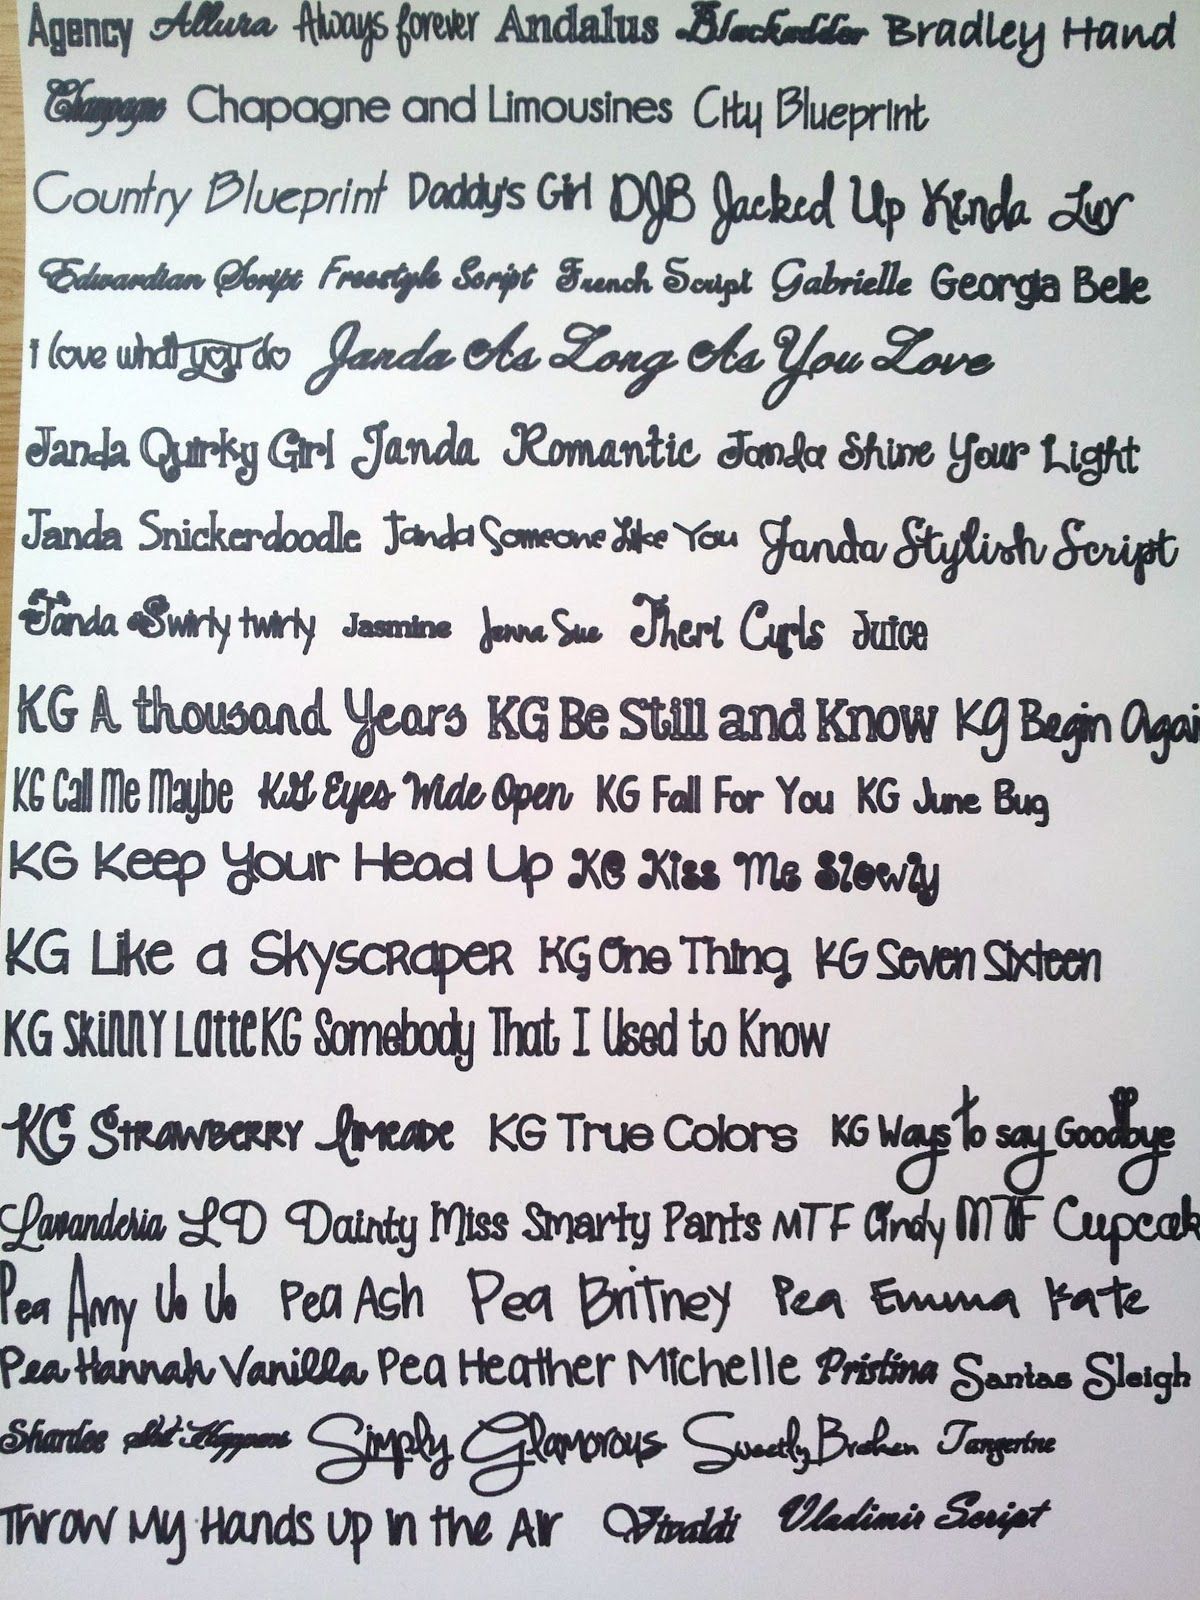 Agency Allura Always forever Andalus Blackadder Bradley Hand
Champagne Chapagne and Limousines City Blueprint
Country Blueprint Daddy's Girl DJB Jacked Up Kinda Luv
Edwardian Script Freestyle Script French Script Gabrielle Georgia Belle
i love what you do Janda As Long As You Love
Janda Quirky Girl Janda Romantic Janda Shine Your Light
Janda Snickerdoodle Janda Someone Like You Janda Stylish Script
Janda Swirly twirly Jasmine Jenna Sue Jheri Curls Juice
KG A thousand Years KG Be Still and Know KG Begin Agai
KG Call Me Maybe KG Eyes Wide Open KG Fall For You KG June Bug
KG Keep Your Head Up KG Kiss Me Slowly
KG Like a Skyscraper KG One Thing KG Seven Sixteen
KG Skinny Latte KG Somebody That I Used to Know
KG Strawberry limeade KG True Colors KG Ways to say Goodbye
Lavanderia LD Dainty Miss Smarty Pants MTF Cindy MTF Cupcak
Pea Amy Pea Ash Pea Britney Pea Emma Kate
Pea Hannah Vanilla Pea Heather Michelle Pristina Santas Sleigh
Shardee Happens Simply Glamorous Sweetly Broken Tangerine
Throw My Hands Up in the Air Vivaldi Vladimir Script